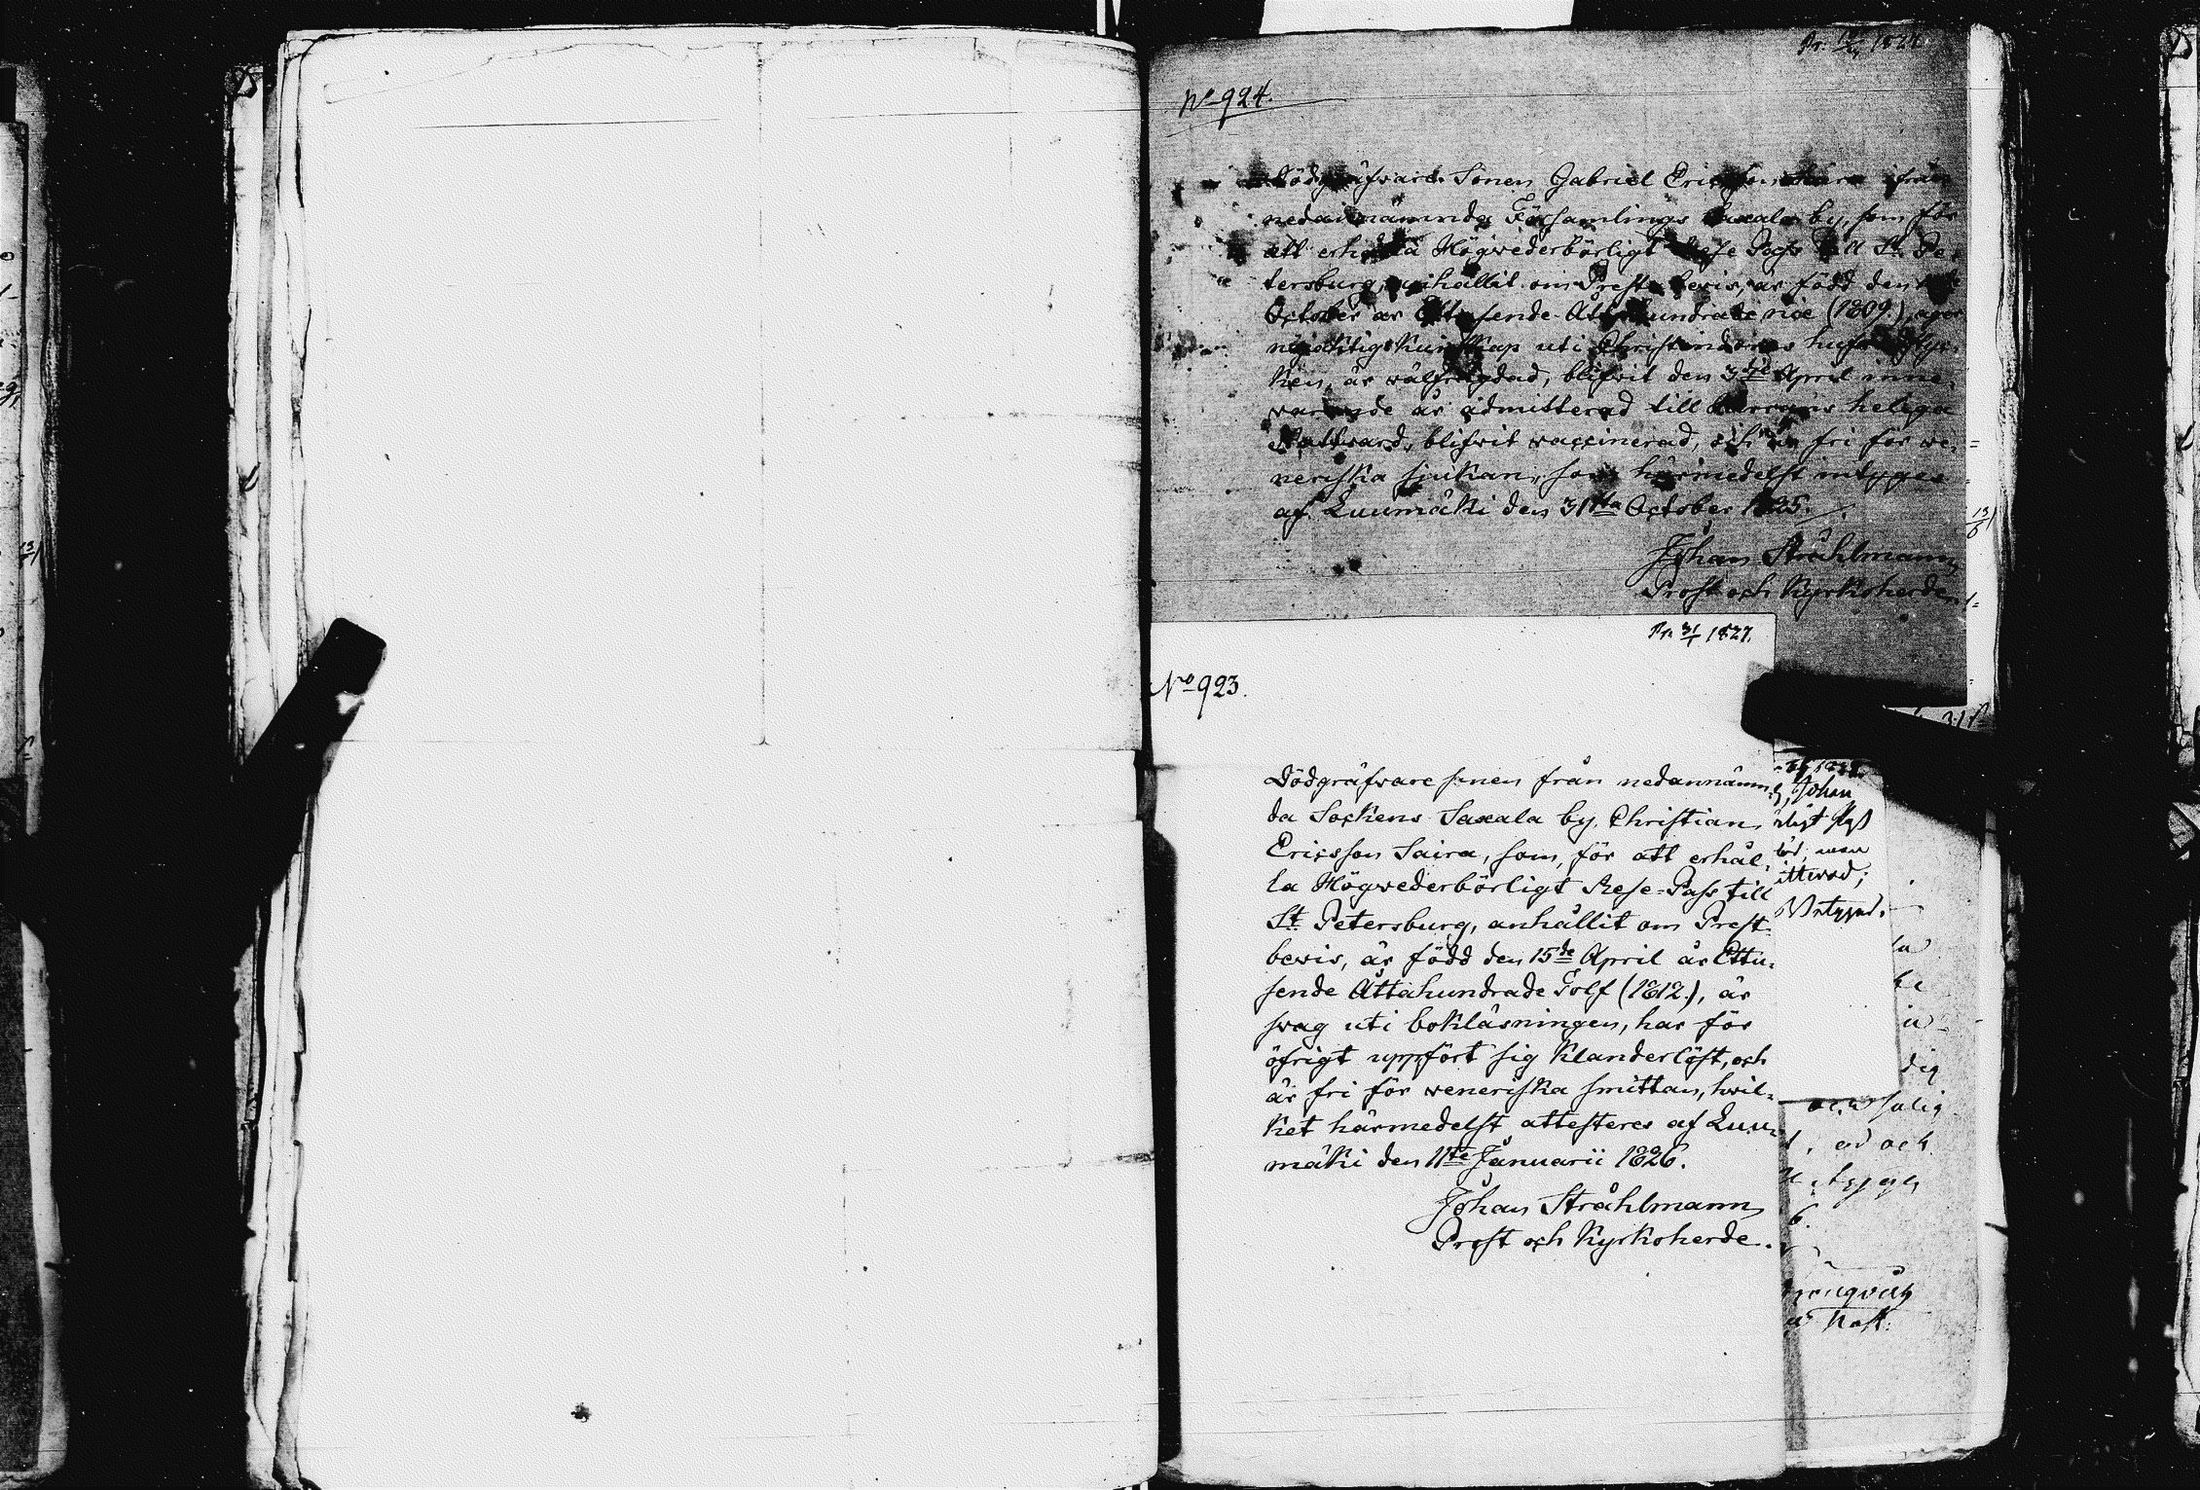 No 924.
Dödgräfware Sonen Gabriel Ericsson ifrån
nedannämnda Församlings Saxala by, som för
att erhålla Högwederbörligt Rese Pass till St. Pe-
tersburg, anhållit om Prestbewis, är född den
October år Ettusende Åttahundrade nie (1809.), äger
nöjaktig Kunskap uti Christendoms
Ken, är wälfrägdad, blifwit den 3dje April inne-
warande år admitterad till Herrans heliga
Nattward, blifwit waccinerad, och är fri för we-
neriska sjukan, som härmedelst intygas
af Luumäki den 31sta October 1825.
Johan Stråhlmann
Prost och Kyrkoherde
Pr. 31/1 1827.
No 923.
Dödgräfware sonen från nedannämn-
da Sockens Saxala by, Christian
Ericsson Saira, som, för att erhål-
la Högwederbörligt Rese-Pass till
St. Petersburg, anhållit om Prest-
bewis, är född den 15de April år Ettu-
sende Åttahundrade Tolf (1812.), är
swag uti bokläsningen, har för
öfrigt uppfört sig Klanderlöst, och
är fri för weneriska smittan, hwil-
ket härmedelst attesteres af Luu-
mäki den 11te Januarii 1826.
Johan Stråhlmann
Prost och Kyrkoherde.
Johan